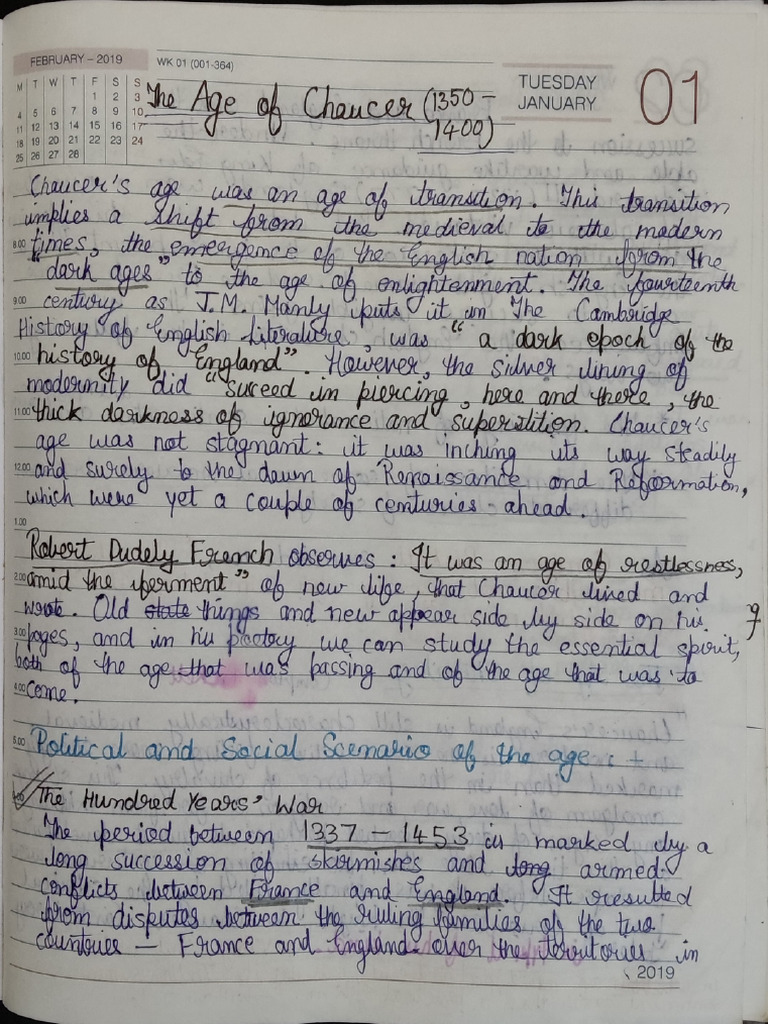 FEBRUARY – 2019
M T W T F S S
1 2 3
4 5 6 7 8 9 10
11 12 13 14 15 16 17
18 19 20 21 22 23 24
25 26 27 28
WK 01 (001-364)
TUESDAY
JANUARY
01
The Age of Chaucer (1350 –
1400)
Chaucer's age was an age of transition. This transition
implies a shift from the medieval to the modern
8.00 times, the emergence of the English nation from the
"dark ages" to the age of enlightenment. The fourteenth
9.00 century as J.M. Manly puts it in The Cambridge
History of English Literature, was "a dark epoch of the
10.00 history of England". However, the silver lining of
modernity did "suceed in piercing, here and there, the
11.00 thick darkness of ignorance and superstition. Chaucer's
age was not stagnant: it was inching its way steadily
12.00 and surely to the dawn of Renaissance and Reformation,
which were yet a couple of centuries ahead.
1.00
Robert Dudely French observes: It was an age of restlessness,
2.00 amid the ferment" of new life, that Chaucer lived and
wrote. Old state things and new appear side by side on his
3.00 pages, and in his poetry we can study the essential spirit,
both of the age that was passing and of the age that was to
4.00 come.
5.00 Political and Social Scenario of the age: +
The Hundred Years' War
The period between 1337 – 1453 is marked by a
long succession of skirmishes and long armed
conflicts between France and England. It resulted
from disputes between the ruling families of the two
countries – France and England over the territories in
2019